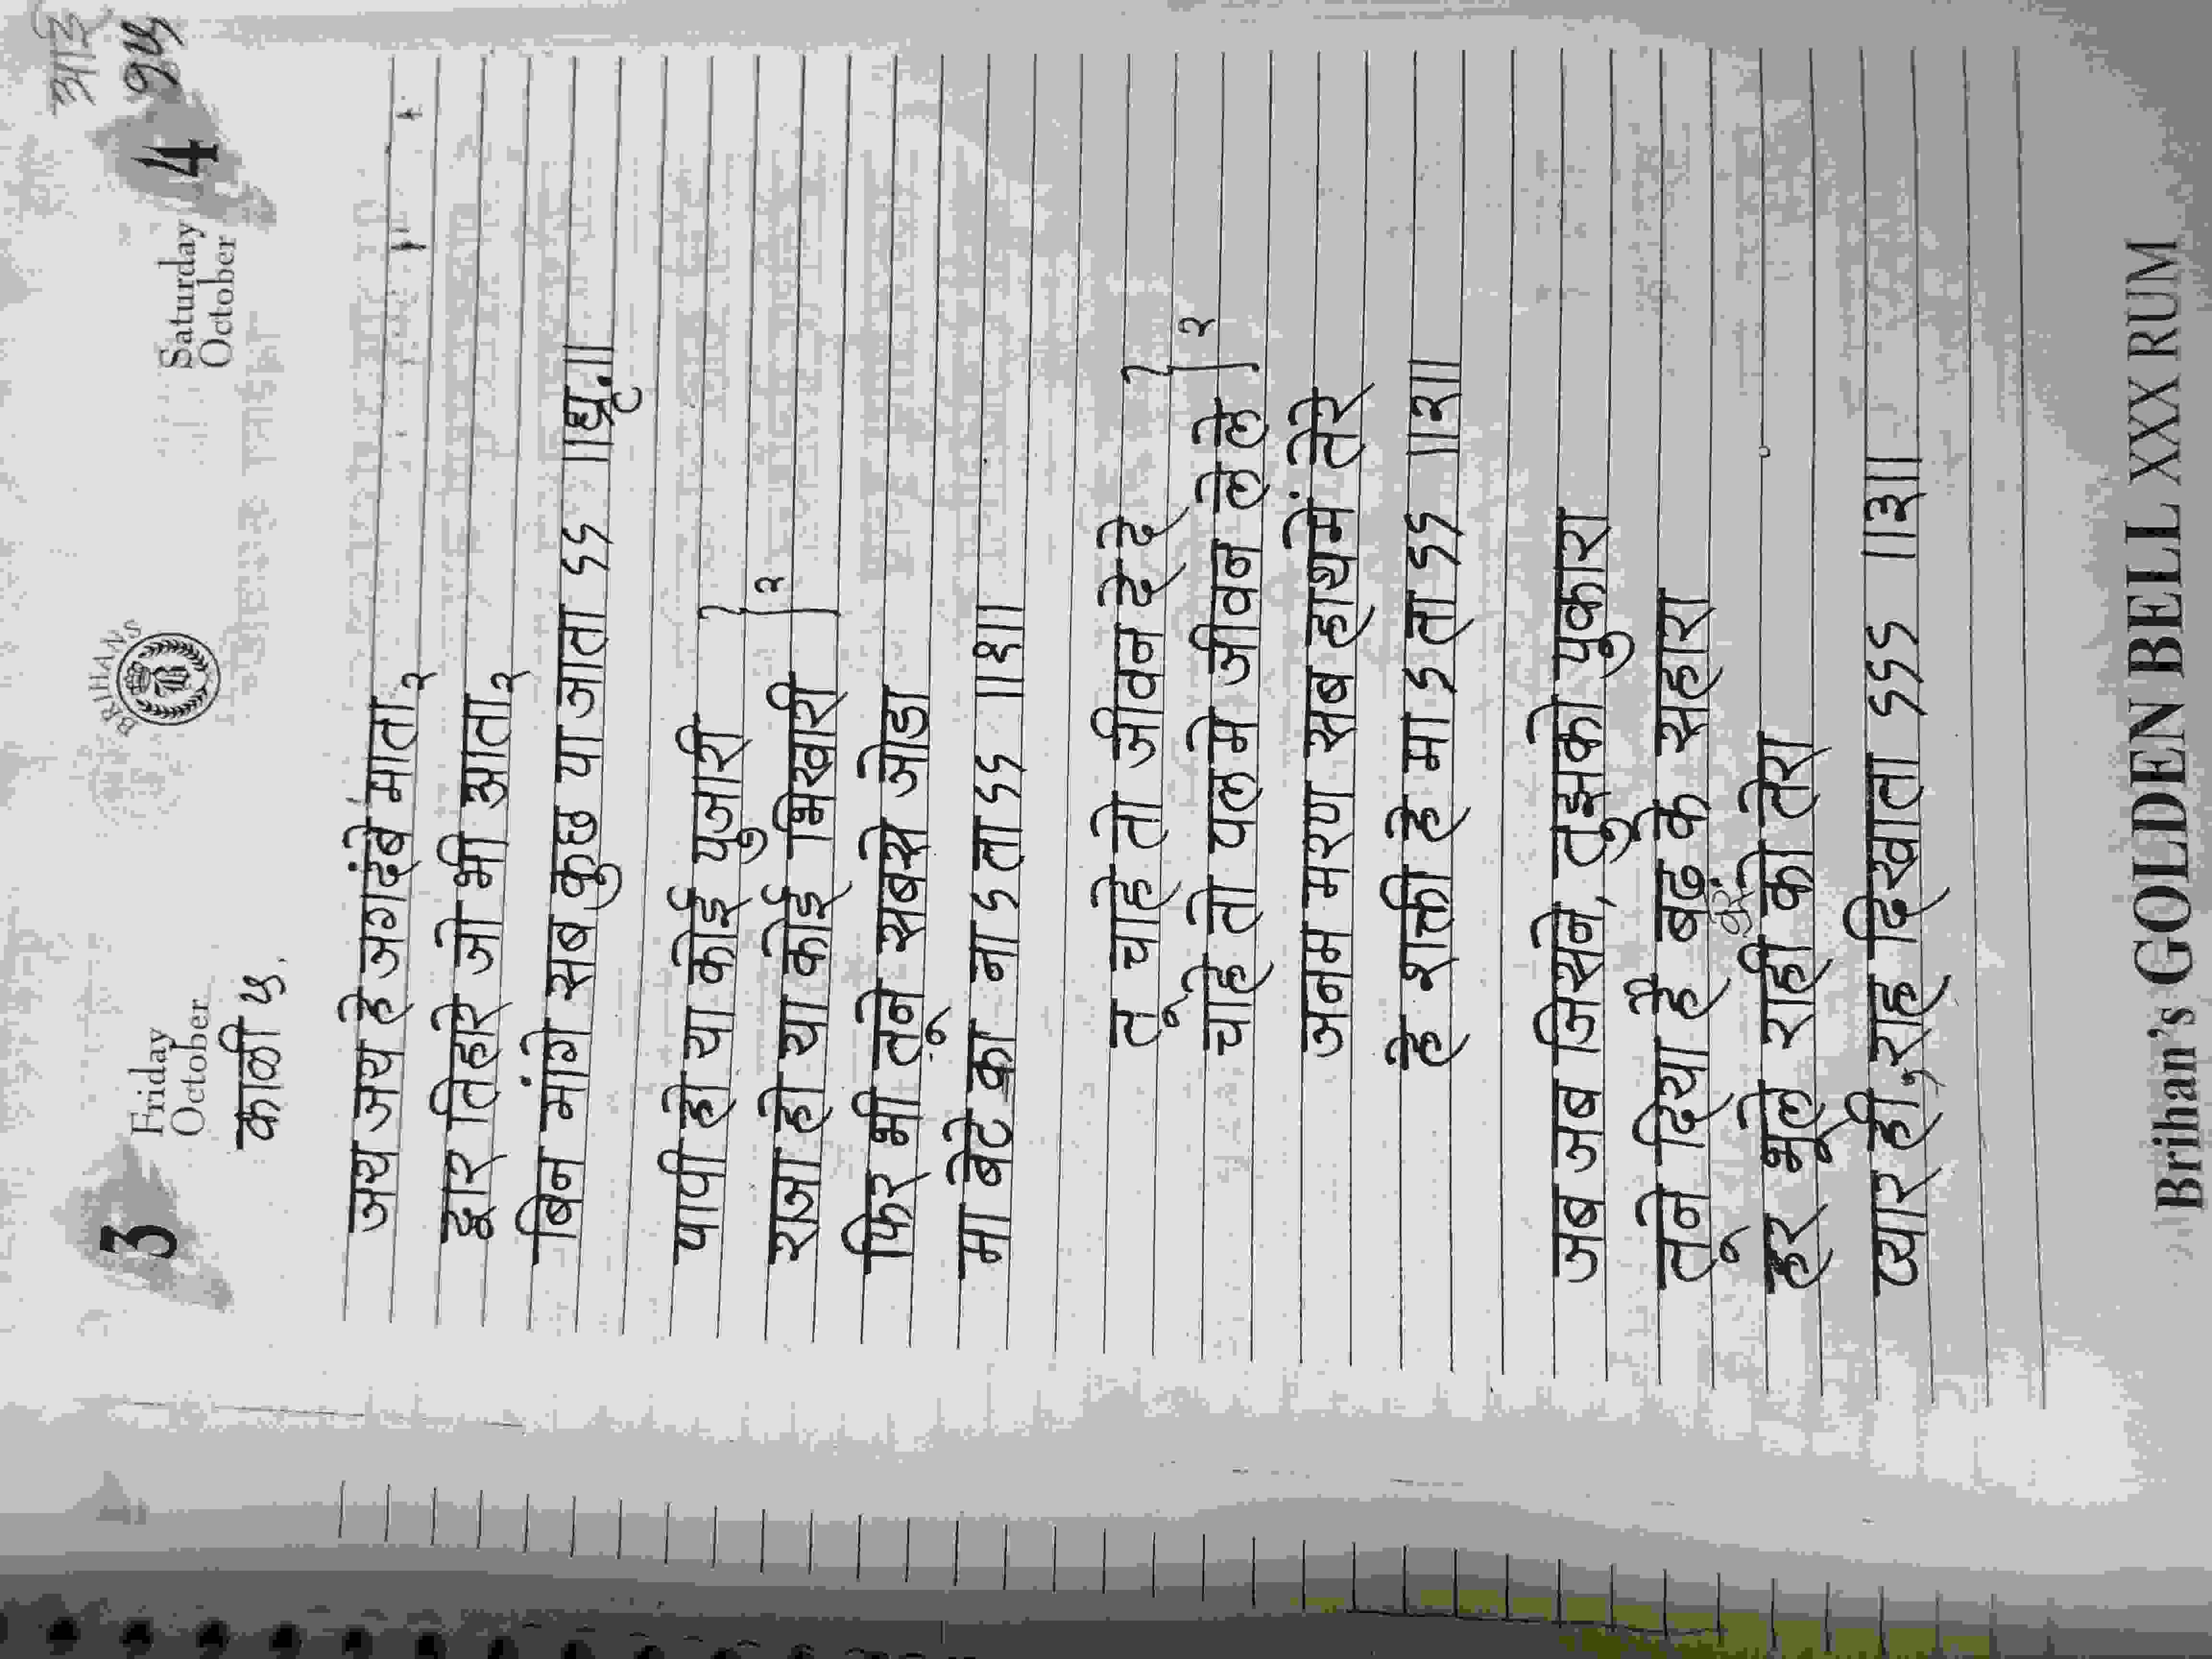 आई
3 Friday October
BRIHANS
B
Saturday October 4
१५
काळी ५.
जय जय हे जगदंबे माता२
द्वार तिहारे जो भी आता२
बिन मांगे सब कुछ पा जाता ऽऽ ॥धृ.॥
पापी हो या कोई पुजारी
राजा हो या कोई भिखारी } २
फिर भी तूने सबसे जोडा
मा बेटे का ना ऽ ता ऽऽ ॥१॥
तू चाहे तो जीवन दे दे
चाहे तो पल मे जीवन ले ले } २
जनम मरण सब हाथमें तेरे
हे शक्ती हे मा ऽ ता ऽऽ ॥२॥
जब जब जिसने, तुझको पुकारा
तूने दिया है बढ़ के सहारा
हर भूले राही को तेरा
प्यार ही, राह दिखाता ऽऽऽ ॥३॥
Brihan's GOLDEN BELL XXX RUM